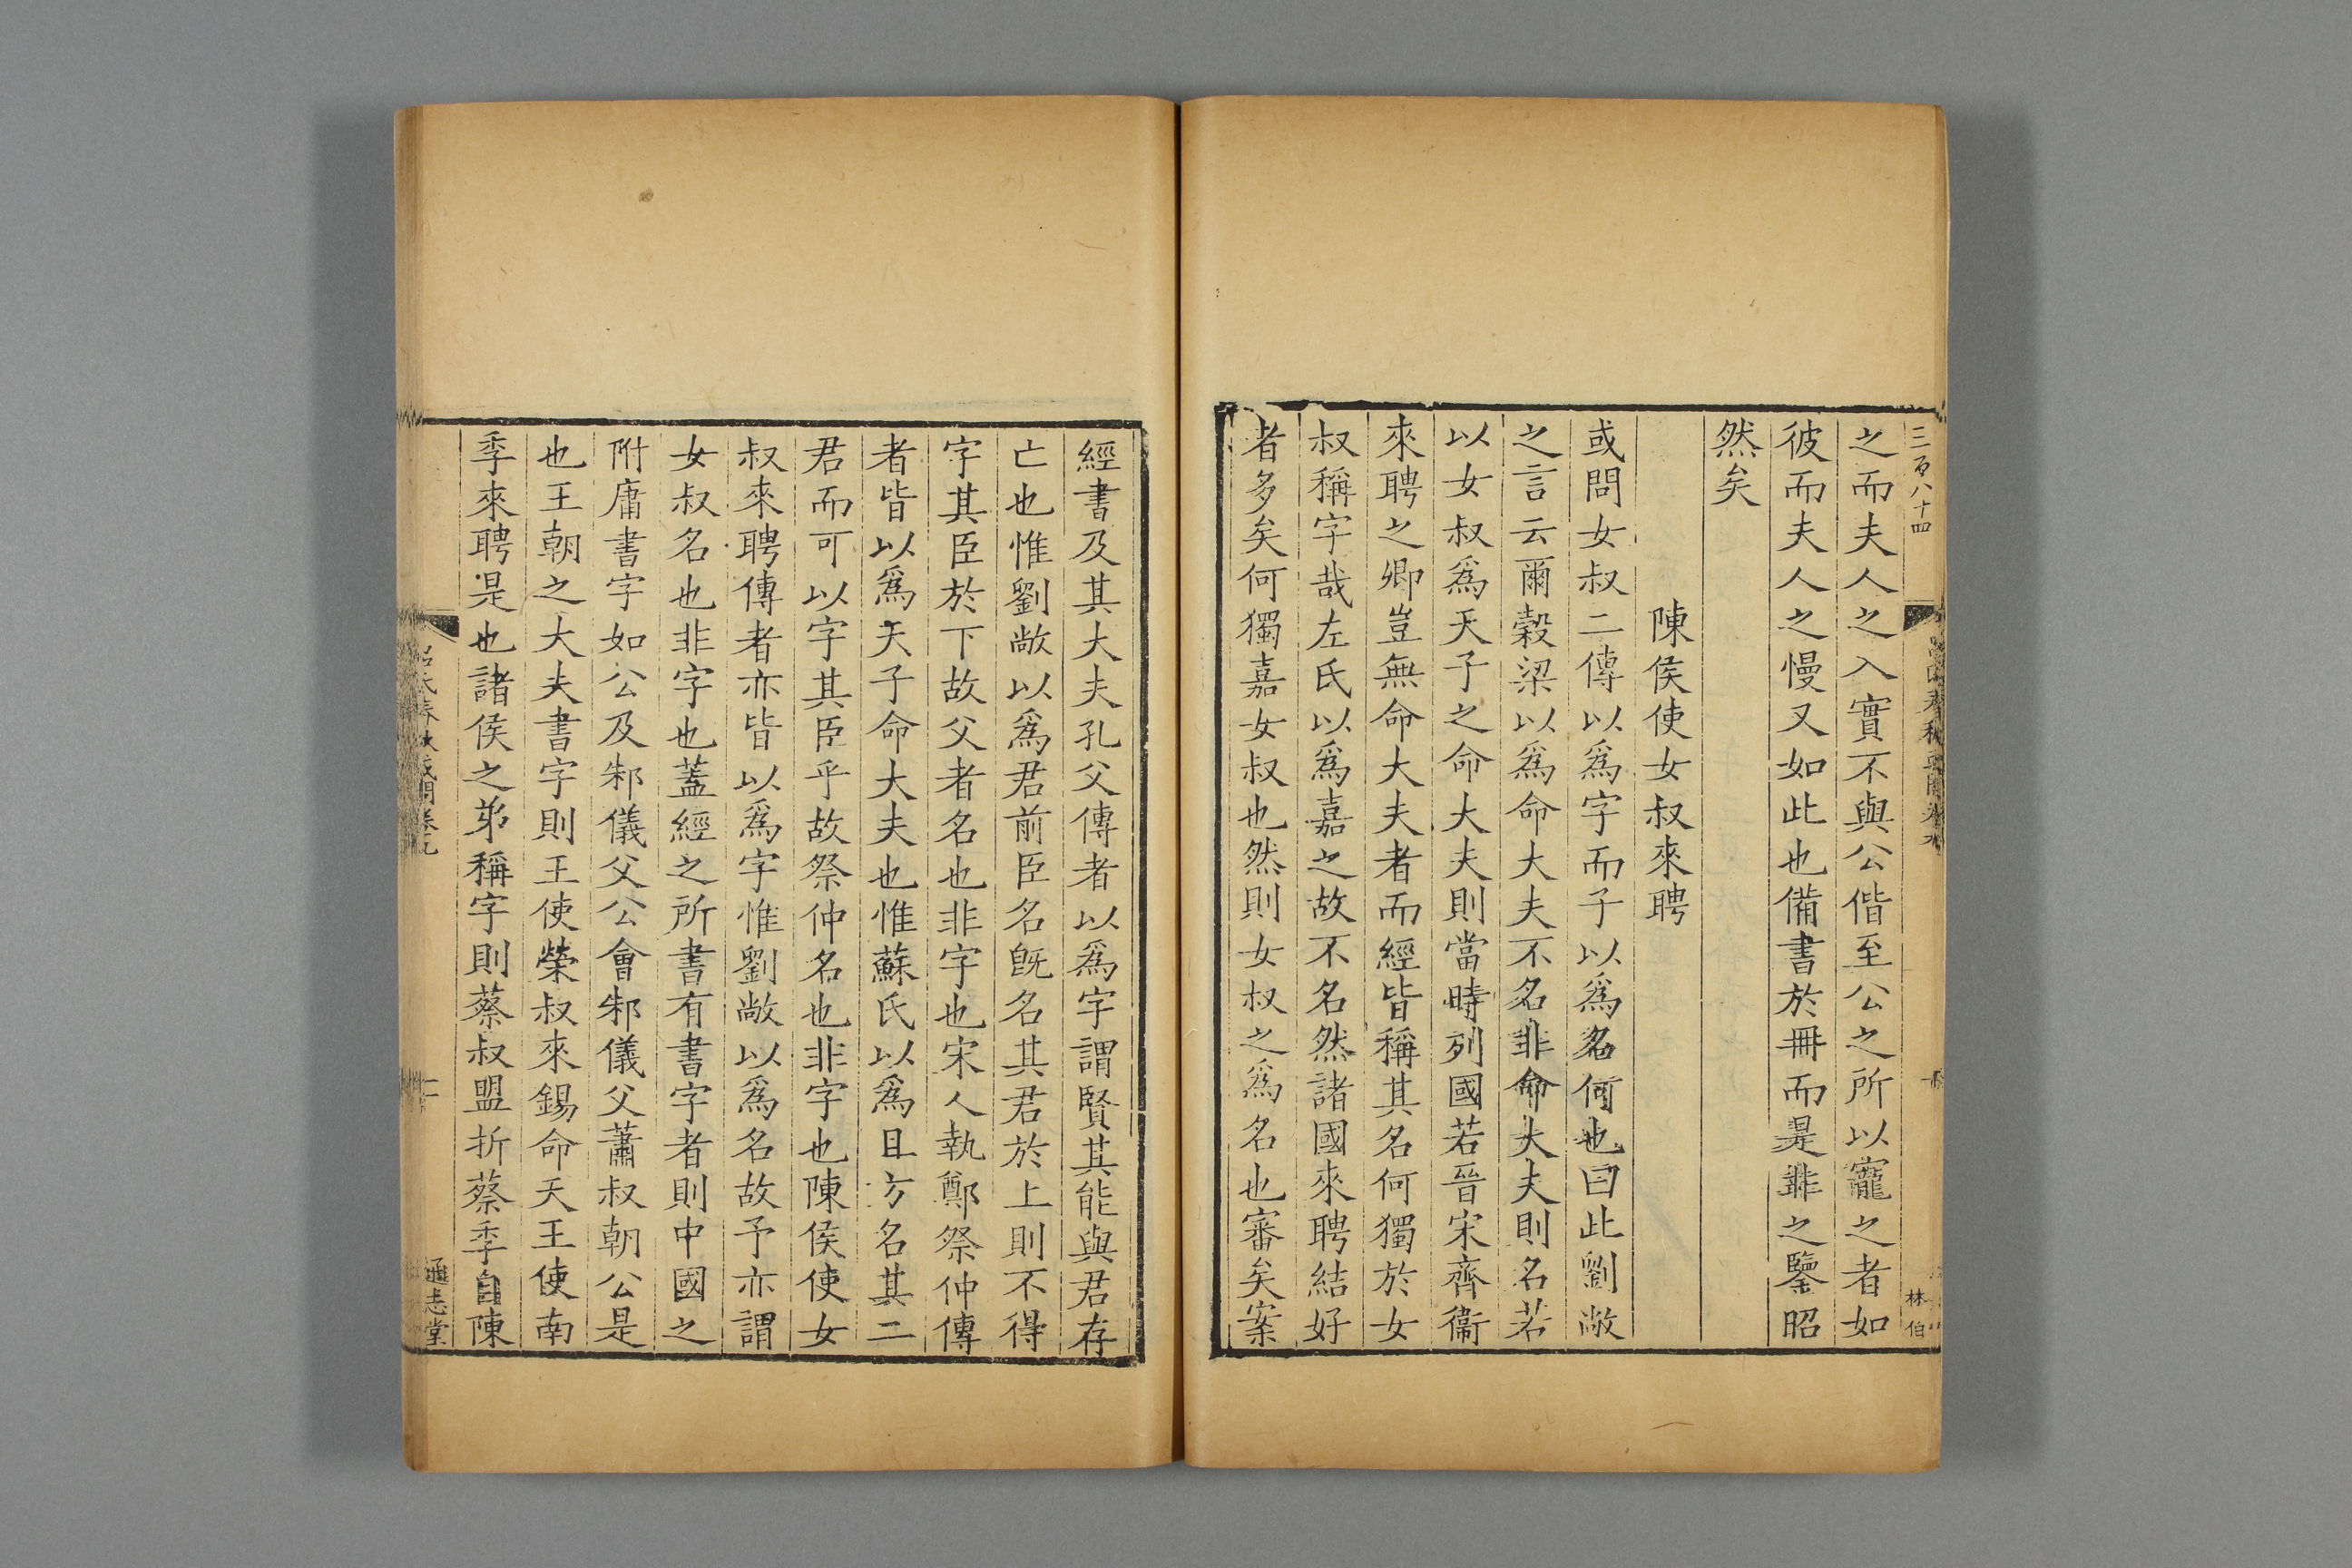 三百八十四
林伯
之而夫人之入實不與公偕至公之所以寵之者如
彼而夫人之慢又如此也備書於冊而是非之鑒昭
然矣
陳侯使女叔來聘
或問女叔二傳以爲字而子以爲名何也曰此劉敞
之言云爾穀梁以爲命大夫不名非命大夫則名若
以女叔爲天子之命大夫則當時列國若晉宋齊衞
來聘之卿豈無命大夫者而經皆稱其名何獨於女
叔稱字哉左氏以爲嘉之故不名然諸國來聘結好
者多矣何獨嘉女叔也然則女叔之爲名也審矣案
經書及其大夫孔父傳者以爲字謂賢其能與君存
亡也惟劉敞以爲君前臣名旣名其君於上則不得
字其臣於下故父者名也非字也宋人執鄭祭仲傳
者皆以爲天子命大夫也惟蘇氏以爲旦方名其二
君而可以字其臣乎故祭仲名也非字也陳侯使女
叔來聘傳者亦皆以爲字惟劉敞以爲名故予亦謂
女叔名也非字也蓋經之所書有書字者則中國之
附庸書字如公及邾儀父公會邾儀父蕭叔朝公是
也王朝之大夫書字則王使榮叔來錫命天王使南
季來聘是也諸侯之弟稱字則蔡叔盟折蔡季自陳
呂氏春秋或問卷九
二
通志堂